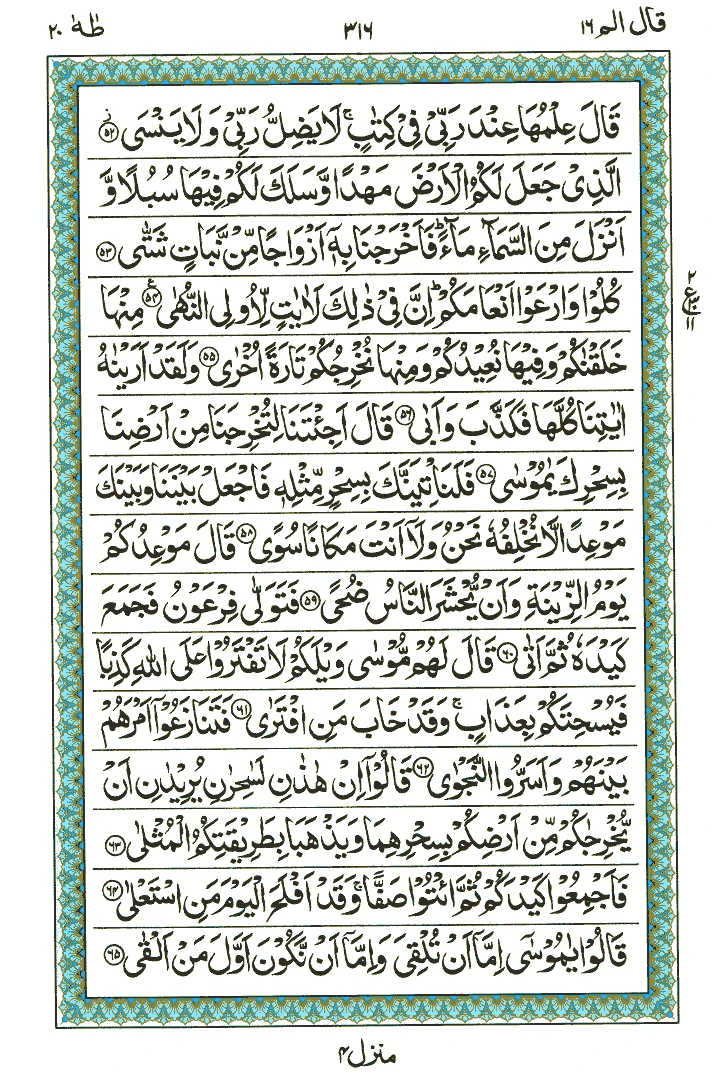 قال الم ١٦ ٣١٦ طٰهٰ ٢٠
قَالَ عِلْمُهَا عِنْدَ رَبِّیْ فِیْ كِتٰبٍ ۚ لَا یَضِلُّ رَبِّیْ وَ لَا یَنْسَی ۫﴿۵۲﴾
الَّذِیْ جَعَلَ لَكُمُ الْاَرْضَ مَهْدًا وَّ سَلَكَ لَكُمْ فِیْهَا سُبُلًا وَّ
اَنْزَلَ مِنَ السَّمَآءِ مَآءً ؕ فَاَخْرَجْنَا بِهٖۤ اَزْوَاجًا مِّنْ نَّبَاتٍ شَتّٰی ﴿۵۳﴾
كُلُوْا وَ ارْعَوْا اَنْعَامَكُمْ ؕ اِنَّ فِیْ ذٰلِكَ لَاٰیٰتٍ لِّاُولِی النُّهٰی ﴿۵۴﴾ع مِنْهَا
خَلَقْنٰكُمْ وَ فِیْهَا نُعِیْدُكُمْ وَ مِنْهَا نُخْرِجُكُمْ تَارَةً اُخْرٰی ﴿۵۵﴾ وَ لَقَدْ اَرَیْنٰهُ
اٰیٰتِنَا كُلَّهَا فَكَذَّبَ وَ اَبٰی ﴿۵۶﴾ قَالَ اَجِئْتَنَا لِتُخْرِجَنَا مِنْ اَرْضِنَا
بِسِحْرِكَ یٰمُوْسٰی ﴿۵۷﴾ فَلَنَاْتِیَنَّكَ بِسِحْرٍ مِّثْلِهٖ فَاجْعَلْ بَیْنَنَا وَ بَیْنَكَ
مَوْعِدًا لَّا نُخْلِفُهٗ نَحْنُ وَ لَاۤ اَنْتَ مَكَانًا سُوًی ﴿۵۸﴾ قَالَ مَوْعِدُكُمْ
یَوْمُ الزِّیْنَةِ وَ اَنْ یُّحْشَرَ النَّاسُ ضُحًی ﴿۵۹﴾ فَتَوَلّٰی فِرْعَوْنُ فَجَمَعَ
كَیْدَهٗ ثُمَّ اَتٰی ﴿۶۰﴾ قَالَ لَهُمْ مُّوْسٰی وَیْلَكُمْ لَا تَفْتَرُوْا عَلَی اللّٰهِ كَذِبًا
فَیُسْحِتَكُمْ بِعَذَابٍ ۚ وَ قَدْ خَابَ مَنِ افْتَرٰی ﴿۶۱﴾ فَتَنَازَعُوْۤا اَمْرَهُمْ
بَیْنَهُمْ وَ اَسَرُّوا النَّجْوٰی ﴿۶۲﴾ قَالُوْۤا اِنْ هٰذٰنِ لَسٰحِرٰنِ یُرِیْدٰنِ اَنْ
یُّخْرِجٰكُمْ مِّنْ اَرْضِكُمْ بِسِحْرِهِمَا وَ یَذْهَبَا بِطَرِیْقَتِكُمُ الْمُثْلٰی ﴿۶۳﴾
فَاَجْمِعُوْا كَیْدَكُمْ ثُمَّ ائْتُوْا صَفًّا ۚ وَ قَدْ اَفْلَحَ الْیَوْمَ مَنِ اسْتَعْلٰی ﴿۶۴﴾
قَالُوْا یٰمُوْسٰۤی اِمَّاۤ اَنْ تُلْقِیَ وَ اِمَّاۤ اَنْ نَّكُوْنَ اَوَّلَ مَنْ اَلْقٰی ﴿۶۵﴾
منزل ۴